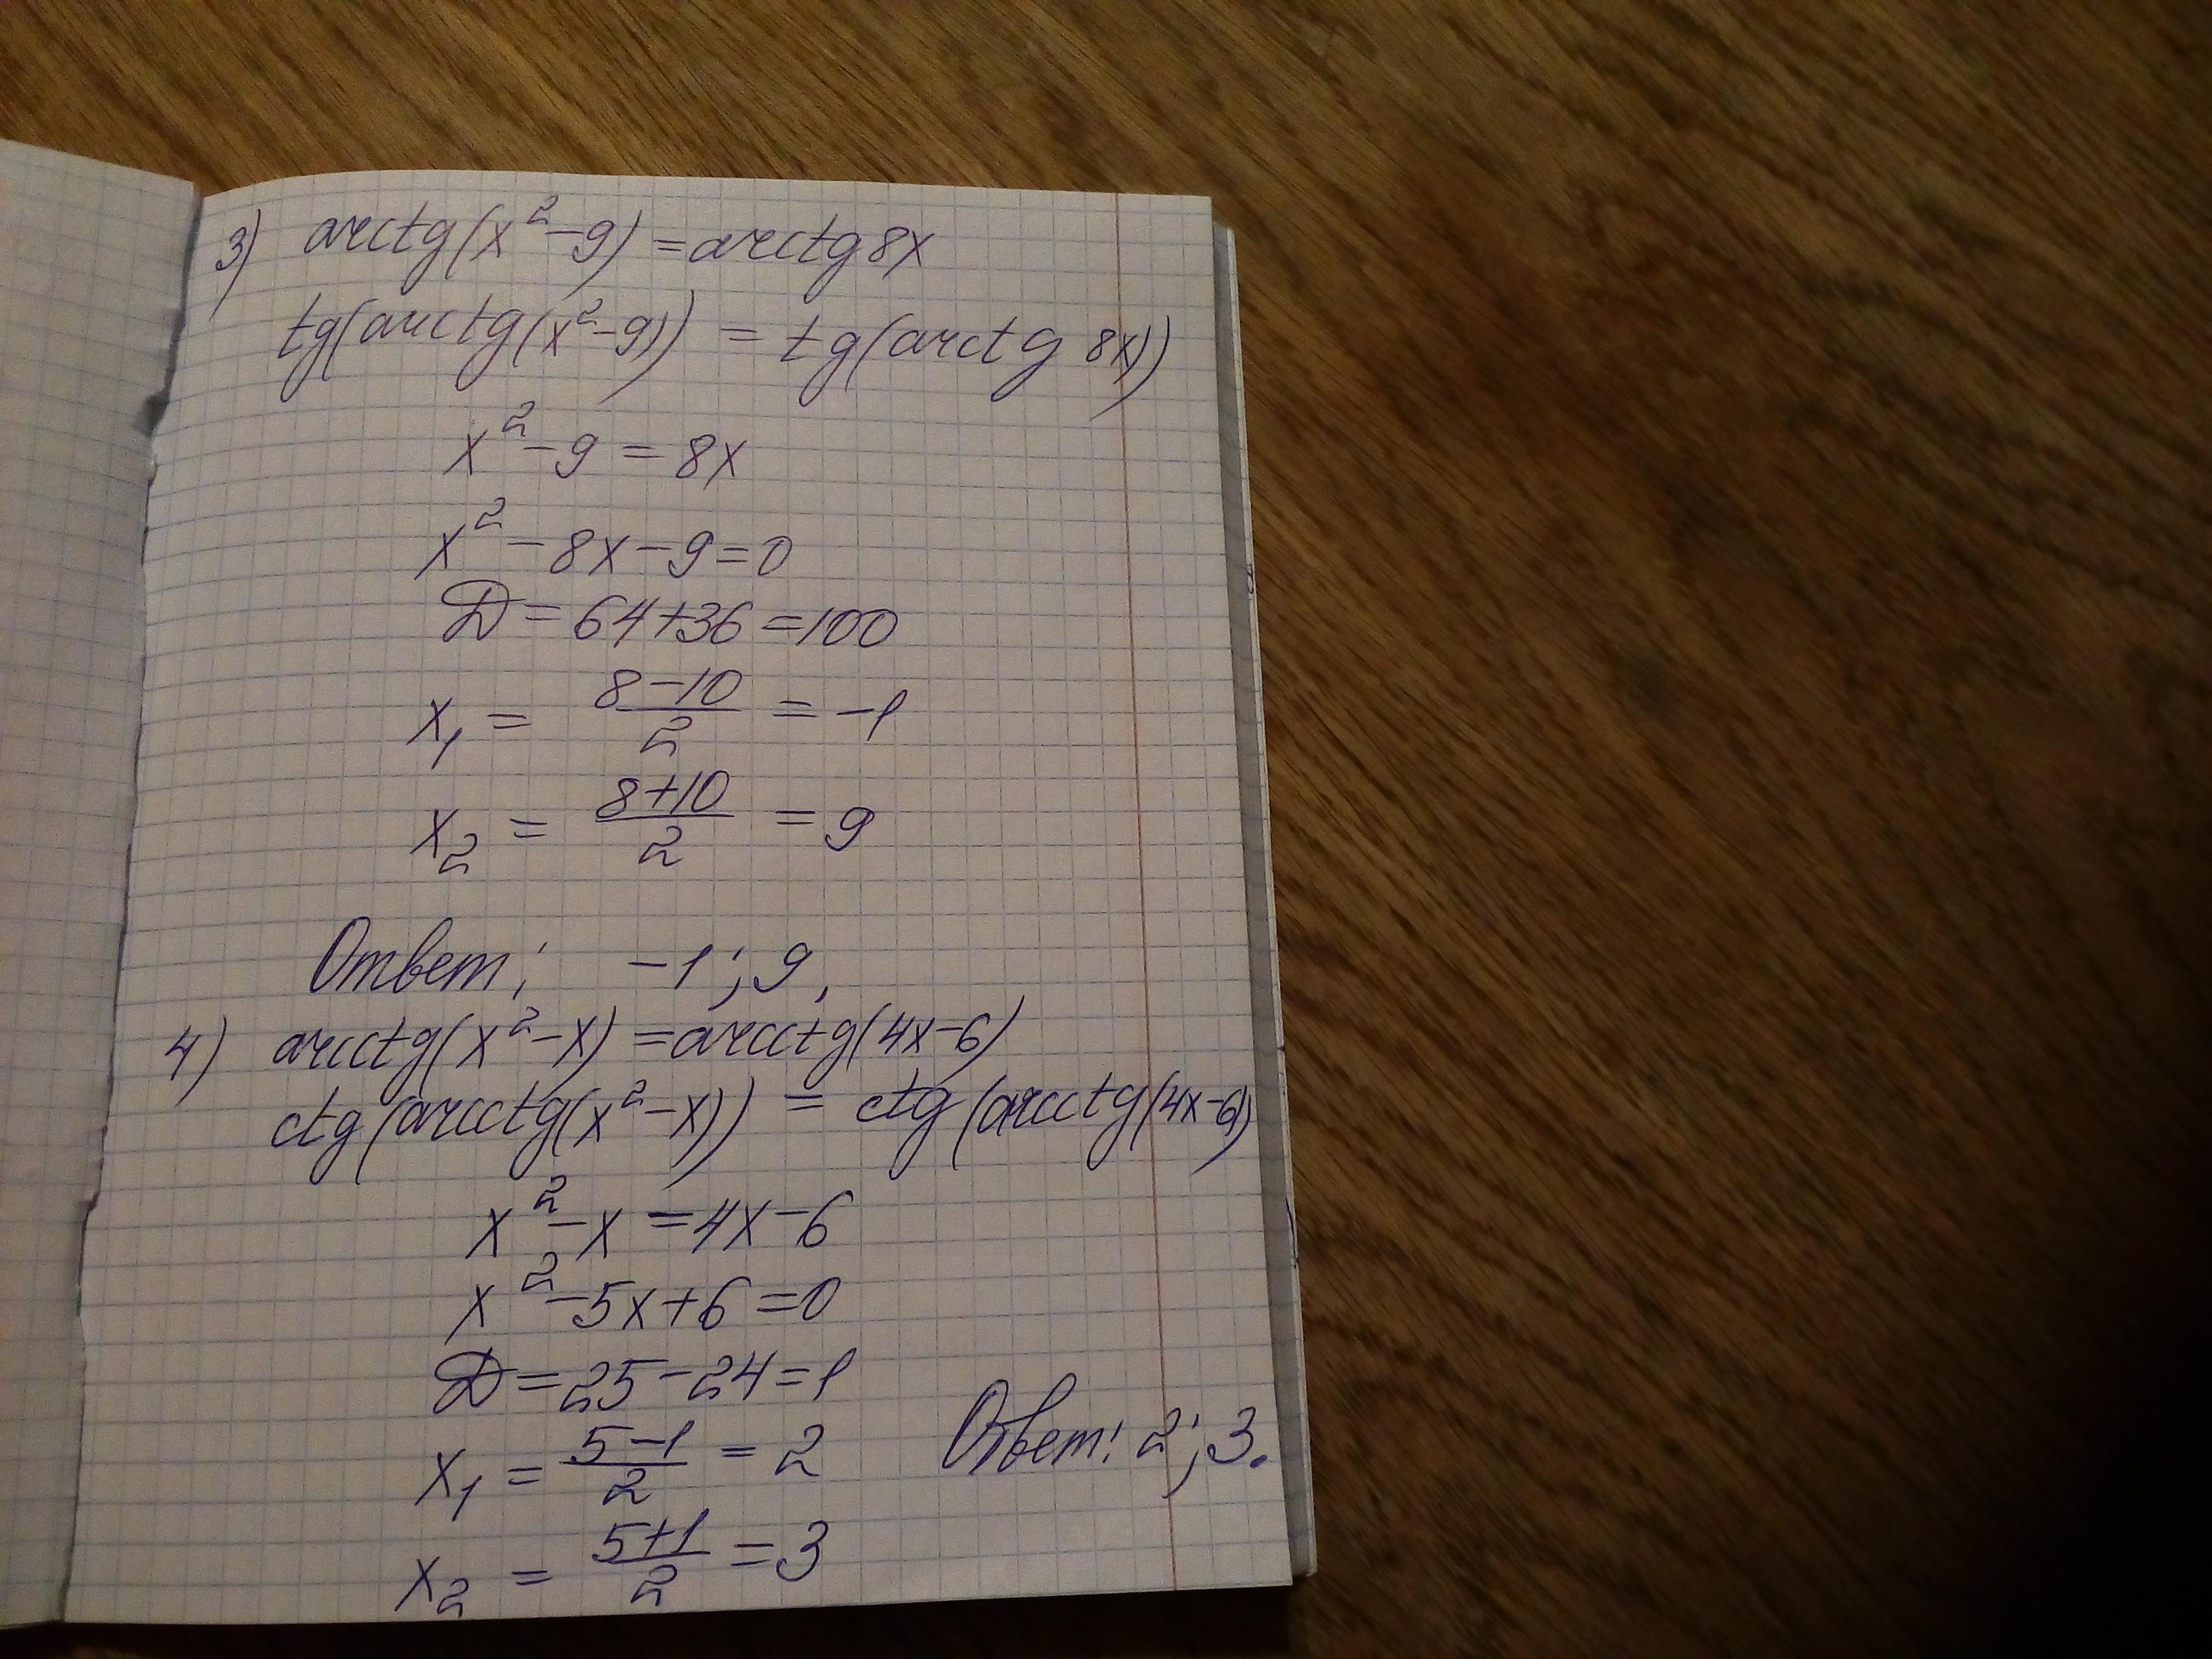 3) arctg(x²-9) = arctg 8x
tg(arctg(x²-9)) = tg(arctg 8x))
x²-9 = 8x
x²-8x-9=0
D = 64+36=100
x₁ = (8-10)/2 = -1
x₂ = (8+10)/2 = 9
Ответ: -1; 9.
4) arcctg(x²-x) = arcctg(4x-6)
ctg(arcctg(x²-x)) = ctg(arcctg(4x-6))
x²-x = 4x-6
x²-5x+6=0
D = 25-24=1
x₁ = (5-1)/2 = 2
Ответ: 2; 3.
x₂ = (5+1)/2 = 3